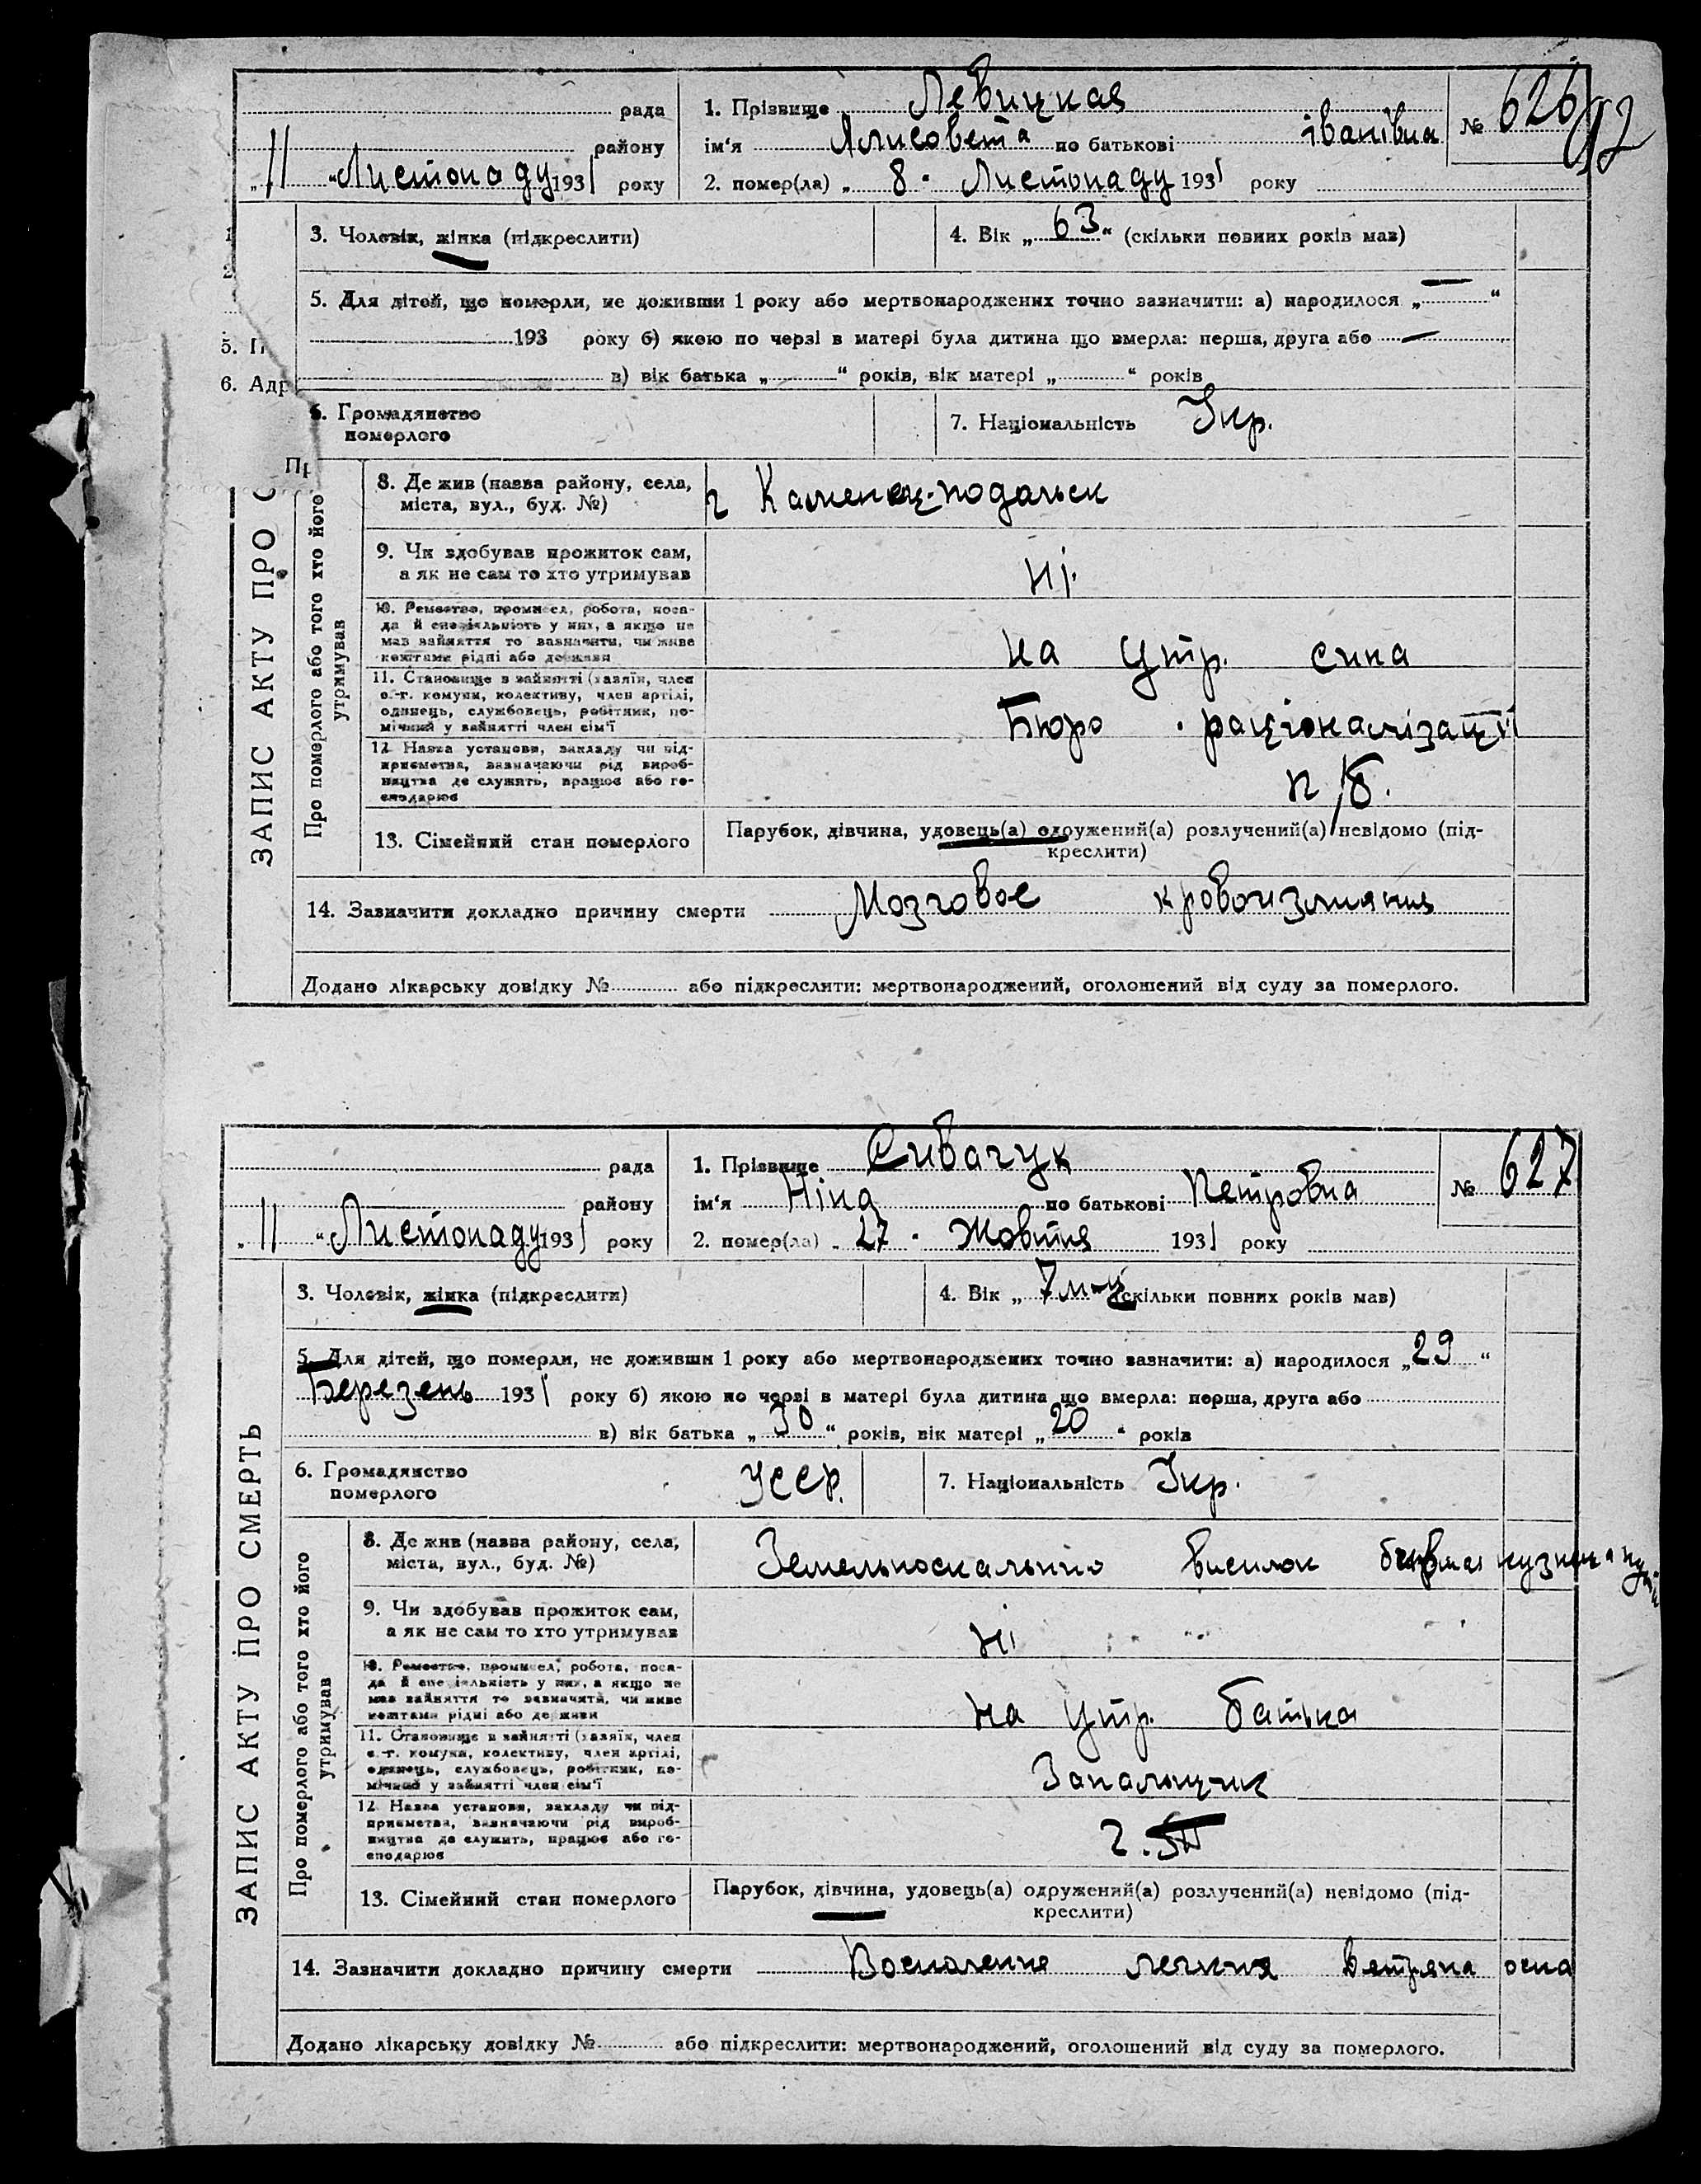 рада
1. Прізвище Левицкая
№ 626
92
району
ім'я Ялисовета по батькові іванівна
„11 "Листопаду 1931 року
2. помер(ла) „ 8 " Листопаду 1931 року
3. Чоловік, жінка (підкреслити)
4. Вік „ 63 " (скільки повних років мав)
5. Для дітей, що померли, не доживши 1 року або мертвонароджених точно зазначити: а) народилося „ — "
193 року б) якою по черзі в матері була дитина що вмерла: перша, друга або —
5. П
в) вік батька „ " років, вік матері „ " років
6. Адр
6. Громадянство померлого
7. Національність Укр.
ЗАПИС АКТУ ПРО С
Про померлого або того хто його утримував
8. Де жив (назва району, села, міста, вул., буд. №)
г Каменец-подольск
9. Чи здобував прожиток сам, а як не сам то хто утримував
Ні.
10. Ремество, промисел, робота, посада й спеціяльність у них, а якщо не мав зайняття то зазначити, чи живе коштами рідні або держави
На утр. сина
11. Становище в зайнятті (хазяїн, член с.-г. комуни, колективу, член артілі, одинець, службовець, робітник, помічний у зайнятті член сім'ї
Бюро раціоналізації
12. Назва установи, закладу чи підприємства, зазначаючи рід виробництва де служить, працює або господарює
п/б.
13. Сімейний стан померлого
Парубок, дівчина, удовець(а) одружений(а) розлучений(а) невідомо (підкреслити)
14. Зазначити докладно причину смерти Мозговое кровоизлияние
Додано лікарську довідку № або підкреслити: мертвонароджений, оголошений від суду за померлого.
рада
1. Прізвище Сивачук
№ 627
району
ім'я Ніна по батькові Петровна
„11 " Листопаду 1931 року
2. помер(ла) „ 27 " Жовтня 1931 року
3. Чоловік, жінка (підкреслити)
4. Вік „ 7 м-ц (скільки повних років мав)
5. Для дітей, що померли, не доживши 1 року або мертвонароджених точно зазначити: а) народилося „ 29 "
Березень 1931 року б) якою по черзі в матері була дитина що вмерла: перша, друга або
в) вік батька „ 30 " років, вік матері „ 20 " років
6. Громадянство померлого УССР.
7. Національність Укр.
ЗАПИС АКТУ ПРО СМЕРТЬ
Про померлого або того хто його утримував
8. Де жив (назва району, села, міста, вул., буд. №)
Земельноскально висилок бившая кузница
9. Чи здобував прожиток сам, а як не сам то хто утримував
Ні
10. Ремество, промисел, робота, посада й спеціяльність у них, а якщо не мав зайняття то зазначити, чи живе коштами рідні або держави
На утр. батька
11. Становище в зайнятті (хазяїн, член с.-г. комуни, колективу, член артілі, одинець, службовець, робітник, помічний у зайнятті член сім'ї
Запальщик
12. Назва установи, закладу чи підприємства, зазначаючи рід виробництва де служить, працює або господарює
13. Сімейний стан померлого
Парубок, дівчина, удовець(а) одружений(а) розлучений(а) невідомо (підкреслити)
14. Зазначити докладно причину смерти Воспаление легких Ветряна оспа
Додано лікарську довідку № або підкреслити: мертвонароджений, оголошений від суду за померлого.